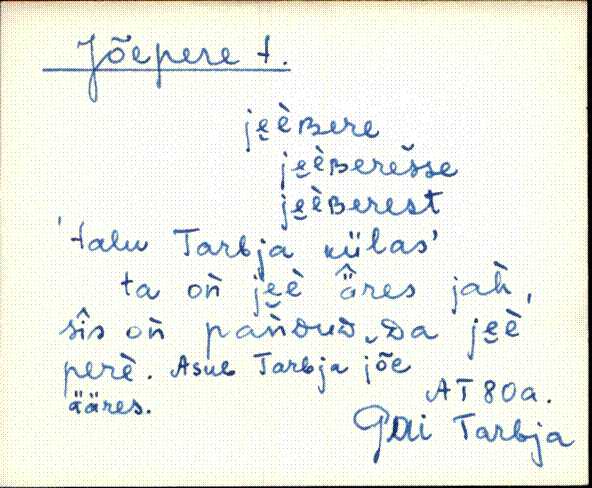 Jõepere t.
je̮èʙere
je̮èʙerešse
je̮èʙerest
'talu Tarbja külas'
ta on̄ je̮è ä̂res jah̀,
sîs on̄ pan̄ᴅuᴅ‿ᴅa je̮è
perè. Asub Tarbja jõe
ääres.
AT 80a.
Pai Tarbja